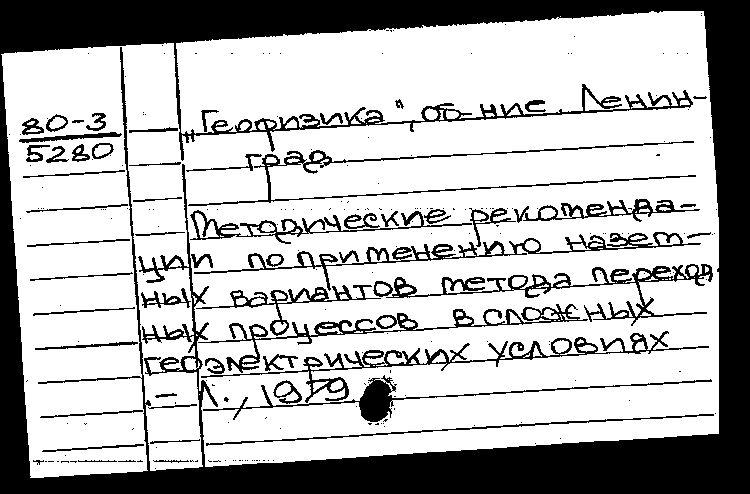 80-3
5280
„Геофизика“, об-ние. Ленин-
град
Методические рекоменда-
ции по применению назем-
ных вариантов метода переход-
ных процессов в сложных
геоэлектрических условиях
.- Л., 1979